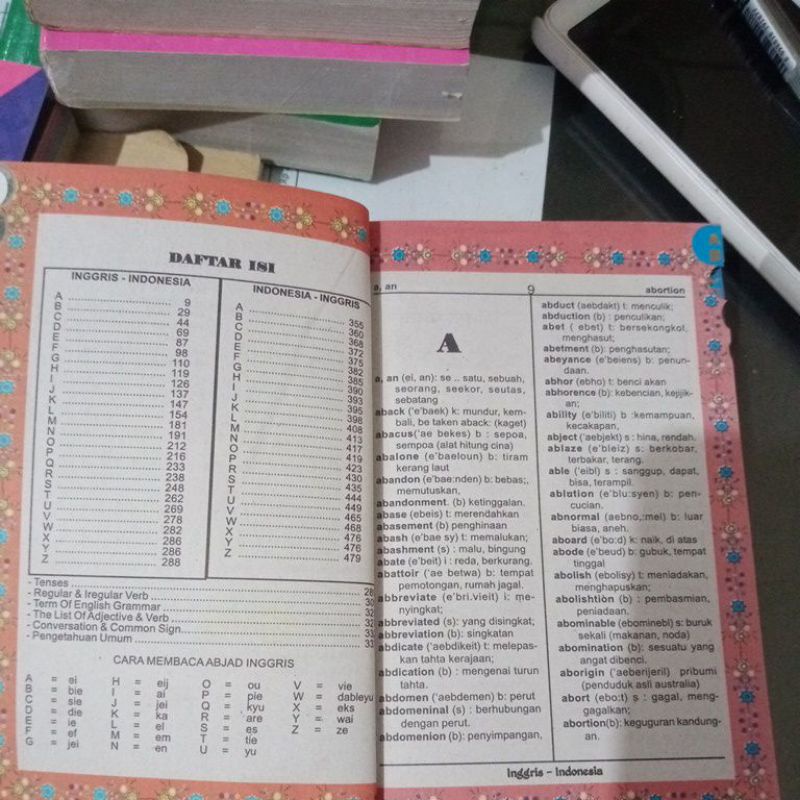 DAFTAR ISI
INGGRIS - INDONESIA
A ........ 9
B ........ 29
C ........ 44
D ........ 69
E ........ 87
F ........ 98
G ........ 110
H ........ 119
I ........ 126
J ........ 137
K ........ 147
L ........ 154
M ........ 181
N ........ 191
O ........ 212
P ........ 216
Q ........ 233
R ........ 238
S ........ 248
T ........ 262
U ........ 269
V ........ 278
W ........ 282
X ........ 286
Y ........ 286
Z ........ 288
INDONESIA - INGGRIS
A ........ 355
B ........ 360
C ........ 368
D ........ 372
E ........ 375
F ........ 382
G ........ 385
H ........ 390
I ........ 393
J ........ 395
K ........ 398
L ........ 408
M ........ 413
N ........ 417
O ........ 419
P ........ 423
R ........ 430
S ........ 435
T ........ 444
U ........ 449
V ........ 465
W ........ 468
X ........ 476
Y ........ 476
Z ........ 479
- Tenses ........
- Regular & Iregular Verb ........
- Term Of English Grammar ........
- The List Of Adjective & Verb ........
- Conversation & Common Sign ........
- Pengetahuan Umum ........
CARA MEMBACA ABJAD INGGRIS
A = ei
B = bie
C = sie
D = die
E = ie
F = ef
G = jei
H = eij
I = ai
J = jei
K = ka
L = el
M = em
N = en
O = ou
P = pie
Q = kyu
R = are
S = es
T = tie
U = yu
V = vie
W = dableyu
X = eks
Y = wai
Z = ze
a, an 9 abortion
A
a, an (ei, an): se .. satu, sebuah,
seorang, seekor, seutas,
sebatang
aback (e'baek) k: mundur, kem-
bali, be taken aback: (kaget)
abacus('ae bekes) b : sepoa,
sempoa (alat hitung cina)
abalone (e'baeloun) b: tiram
kerang laut
abandon (e'bae:nden) b: bebas;,
memutuskan,
abandonment. (b) ketinggalan.
abase (ebeis) t: merendahkan
abasement (b) penghinaan
abash (e'bae sy) t: memalukan;
abashment (s) : malu, bingung
abate (e'beit) i : reda, berkurang.
abattoir ('ae betwa) b: tempat
pemotongan, rumah jagal.
abbreviate (e'bri.vieit) i: me-
nyingkat;
abbreviated (s): yang disingkat;
abbreviation (b): singkatan
abdicate ('aebdikeit) t: melepas-
kan tahta kerajaan;
abdication (b) : mengenai turun
tahta.
abdomen ('aebdemen) b: perut
abdomeninal (s) : berhubungan
dengan perut.
abdomenion (b): penyimpangan,
abduct (aebdakt) t: menculik;
abduction (b) : penculikan;
abet ( ebet) t: bersekongkol,
menghasut;
abetment (b): penghasutan;
abeyance (e'beiens) b: penun-
daan.
abhor (ebho) t: benci akan
abhorence (b): kebencian, kejijik-
an;
ability (e'biliti) b :kemampuan,
kecakapan,
abject ('aebjekt) s : hina, rendah.
ablaze (e'bleiz) s: berkobar,
terbakar, terang.
able ('eibl) s : sanggup, dapat,
bisa, terampil.
ablution (e'blu:syen) b: pen-
cucian.
abnormal (aebno,:mel) b: luar
biasa, aneh.
aboard (e'bo:d) k: naik, di atas
abode (e'beud) b: gubuk, tempat
tinggal
abolish (ebolisy) t: meniadakan,
menghapuskan;
abolishtion (b) : pembasmian,
peniadaan.
abominable (ebominebl) s: buruk
sekali (makanan, noda)
abomination (b): sesuatu yang
angat dibenci.
aborigin ('aeberijeril) pribumi
(penduduk asli australia)
abort (ebo:t) s : gagal, meng-
gagalkan;
abortion(b): keguguran kandung-
an.
Inggris - Indonesia